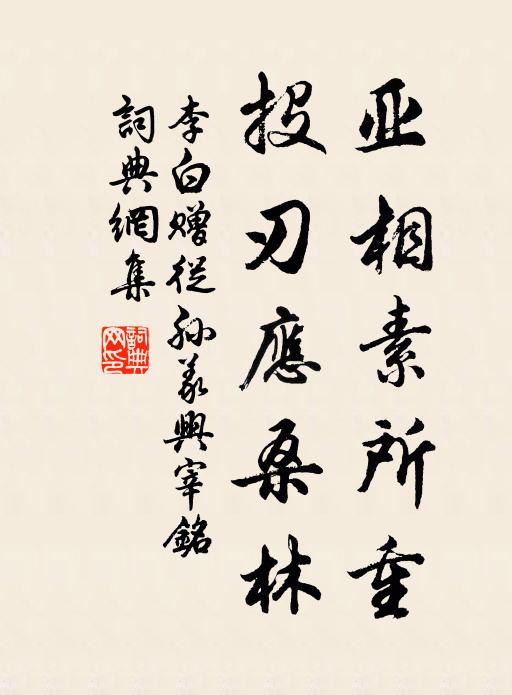 亚相素所重
投刃應桑林
李白贈從孫义興宰銘
詞典網集
詞典网印